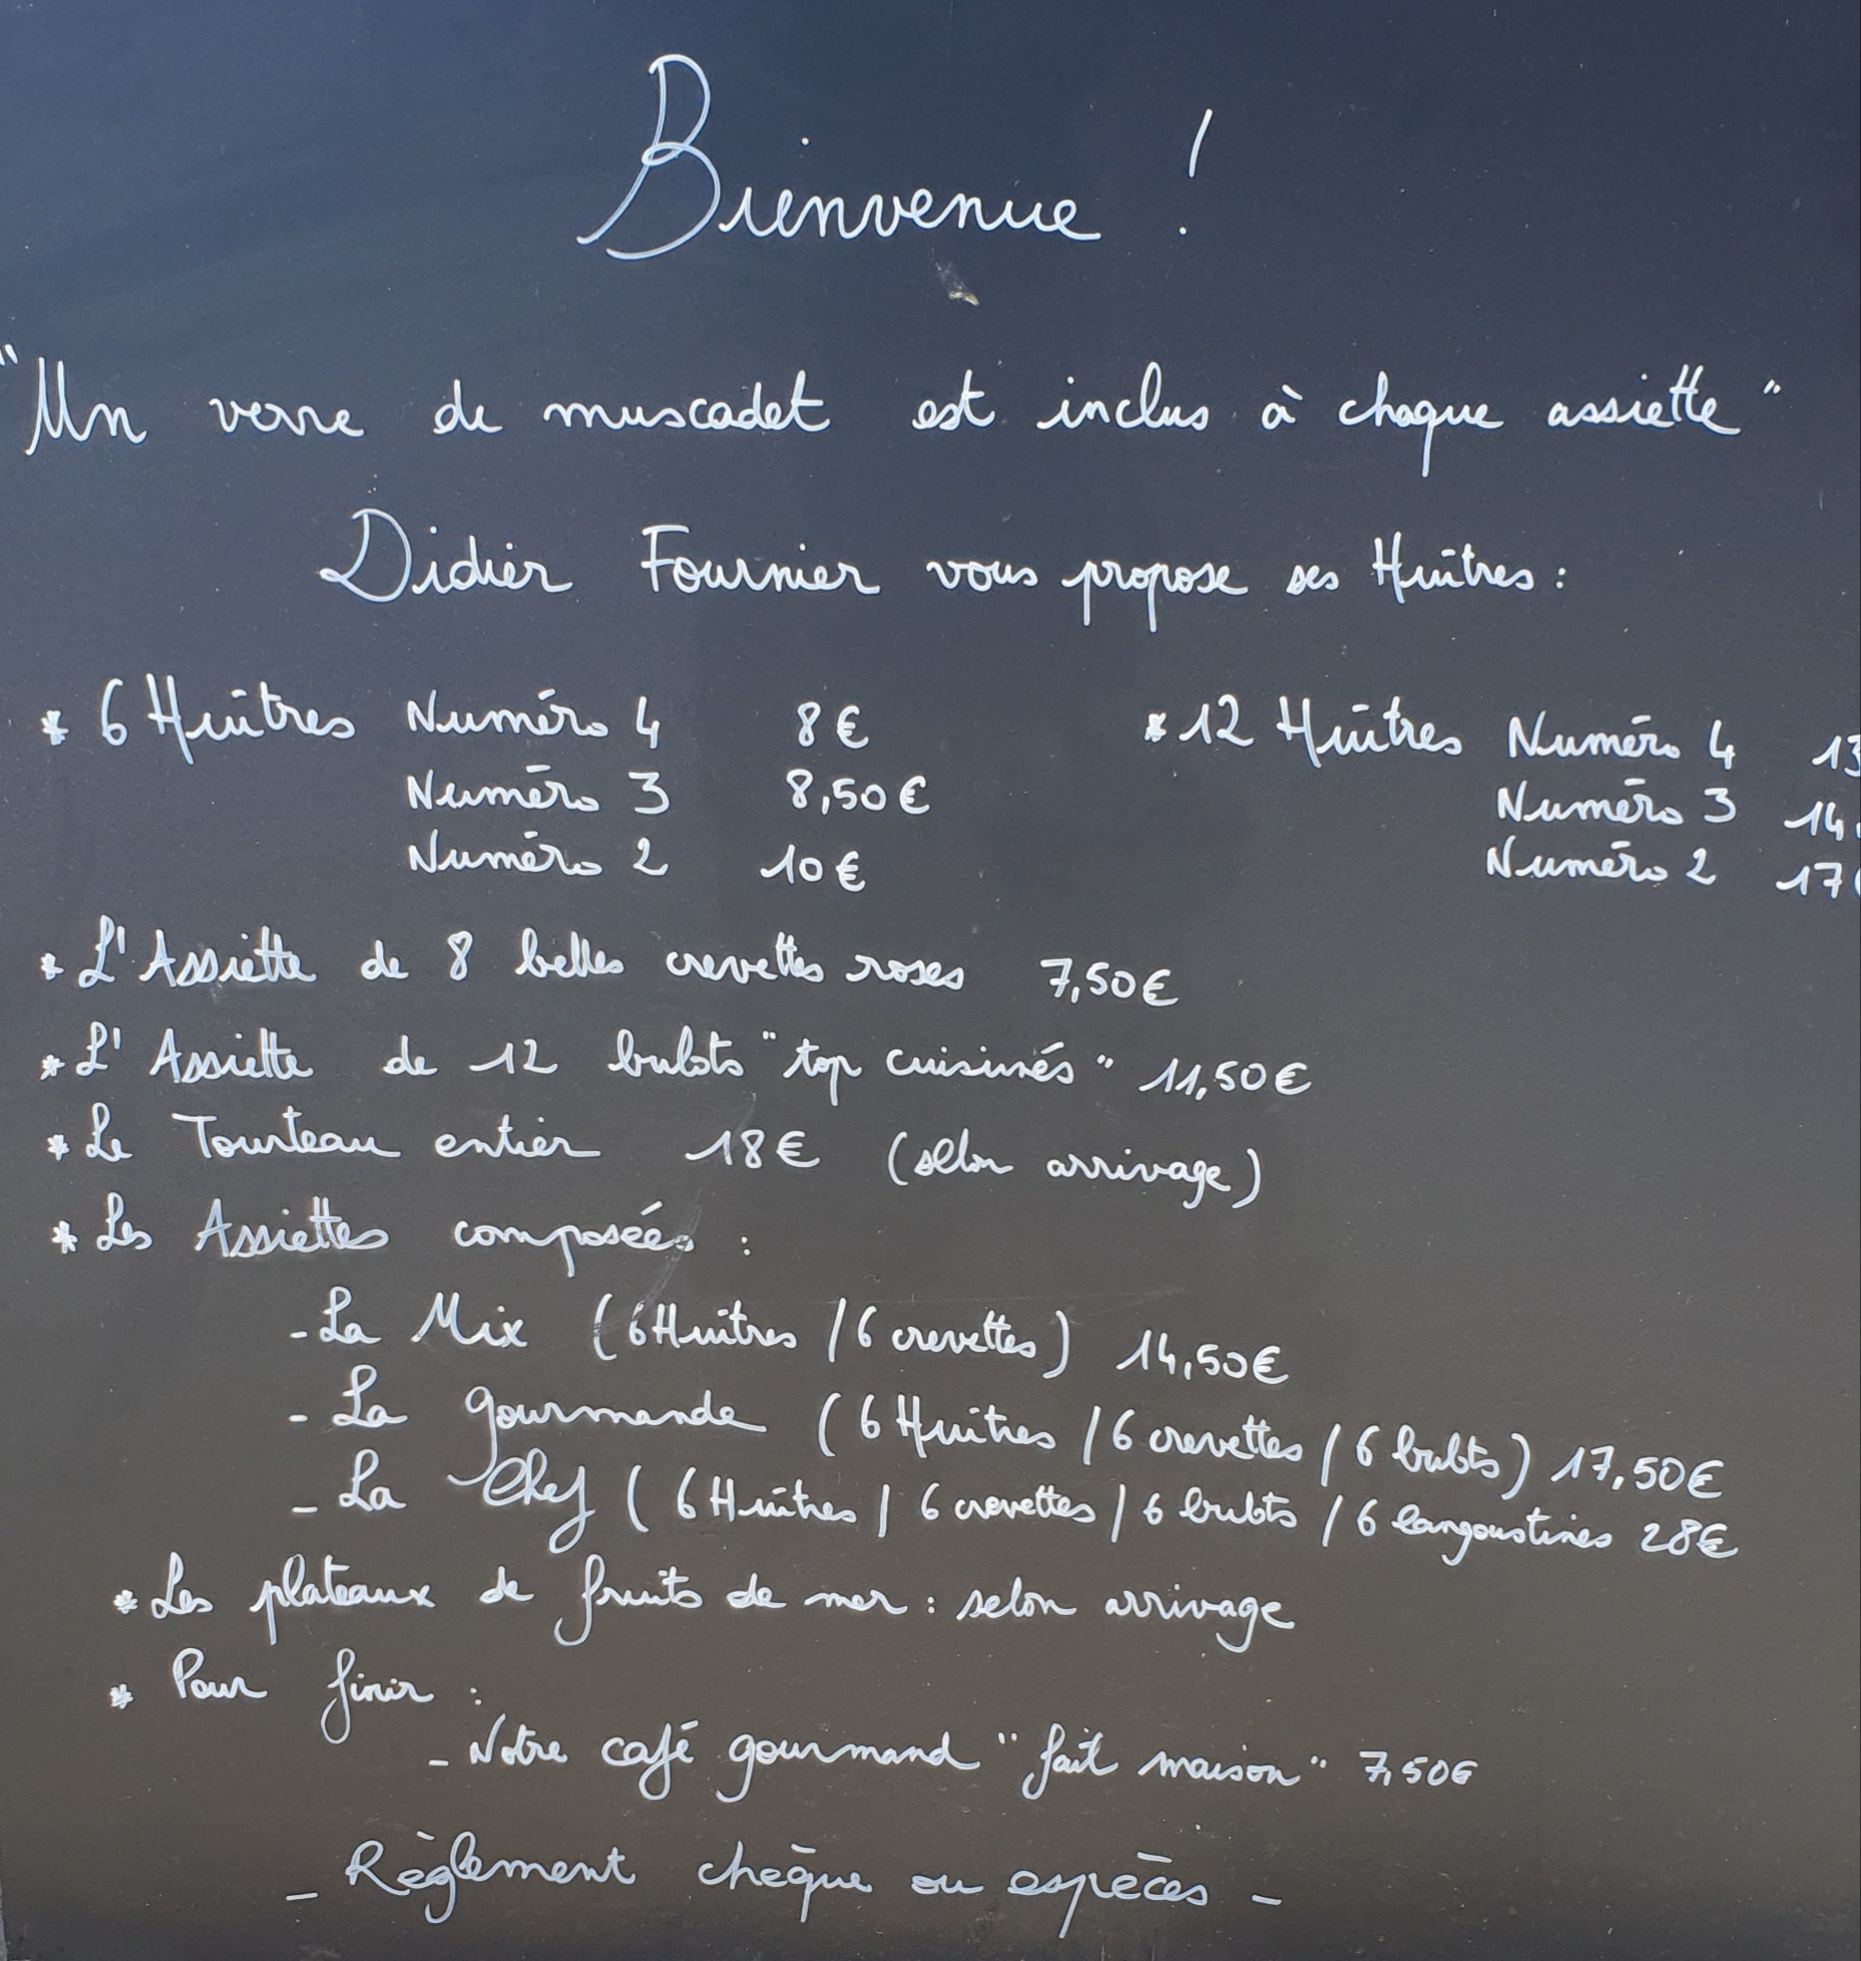 Bienvenue !
"Un verre de muscadet est inclus à chaque assiette"
Didier Fournier vous propose ses Huîtres :
* 6 Huîtres Numéro 4 8€ * 12 Huîtres Numéro 4 13
Numéro 3 8,50€ Numéro 3 14,
Numéro 2 10€ Numéro 2 17€
* L'Assiette de 8 belles crevettes roses 7,50€
* L'Assiette de 12 bulots "top cuisinés" 11,50€
* Le Tourteau entier 18€ (selon arrivage)
* Les Assiettes composées :
- La Mix (6 Huîtres / 6 crevettes) 14,50€
- La gourmande (6 Huîtres / 6 crevettes / 6 bulots) 17,50€
- La Chef (6 Huîtres / 6 crevettes / 6 bulots / 6 langoustines 28€
* Les plateaux de fruits de mer : selon arrivage
* Pour finir :
- Notre café gourmand "fait maison" 7,50€
- Règlement chèque ou espèces -